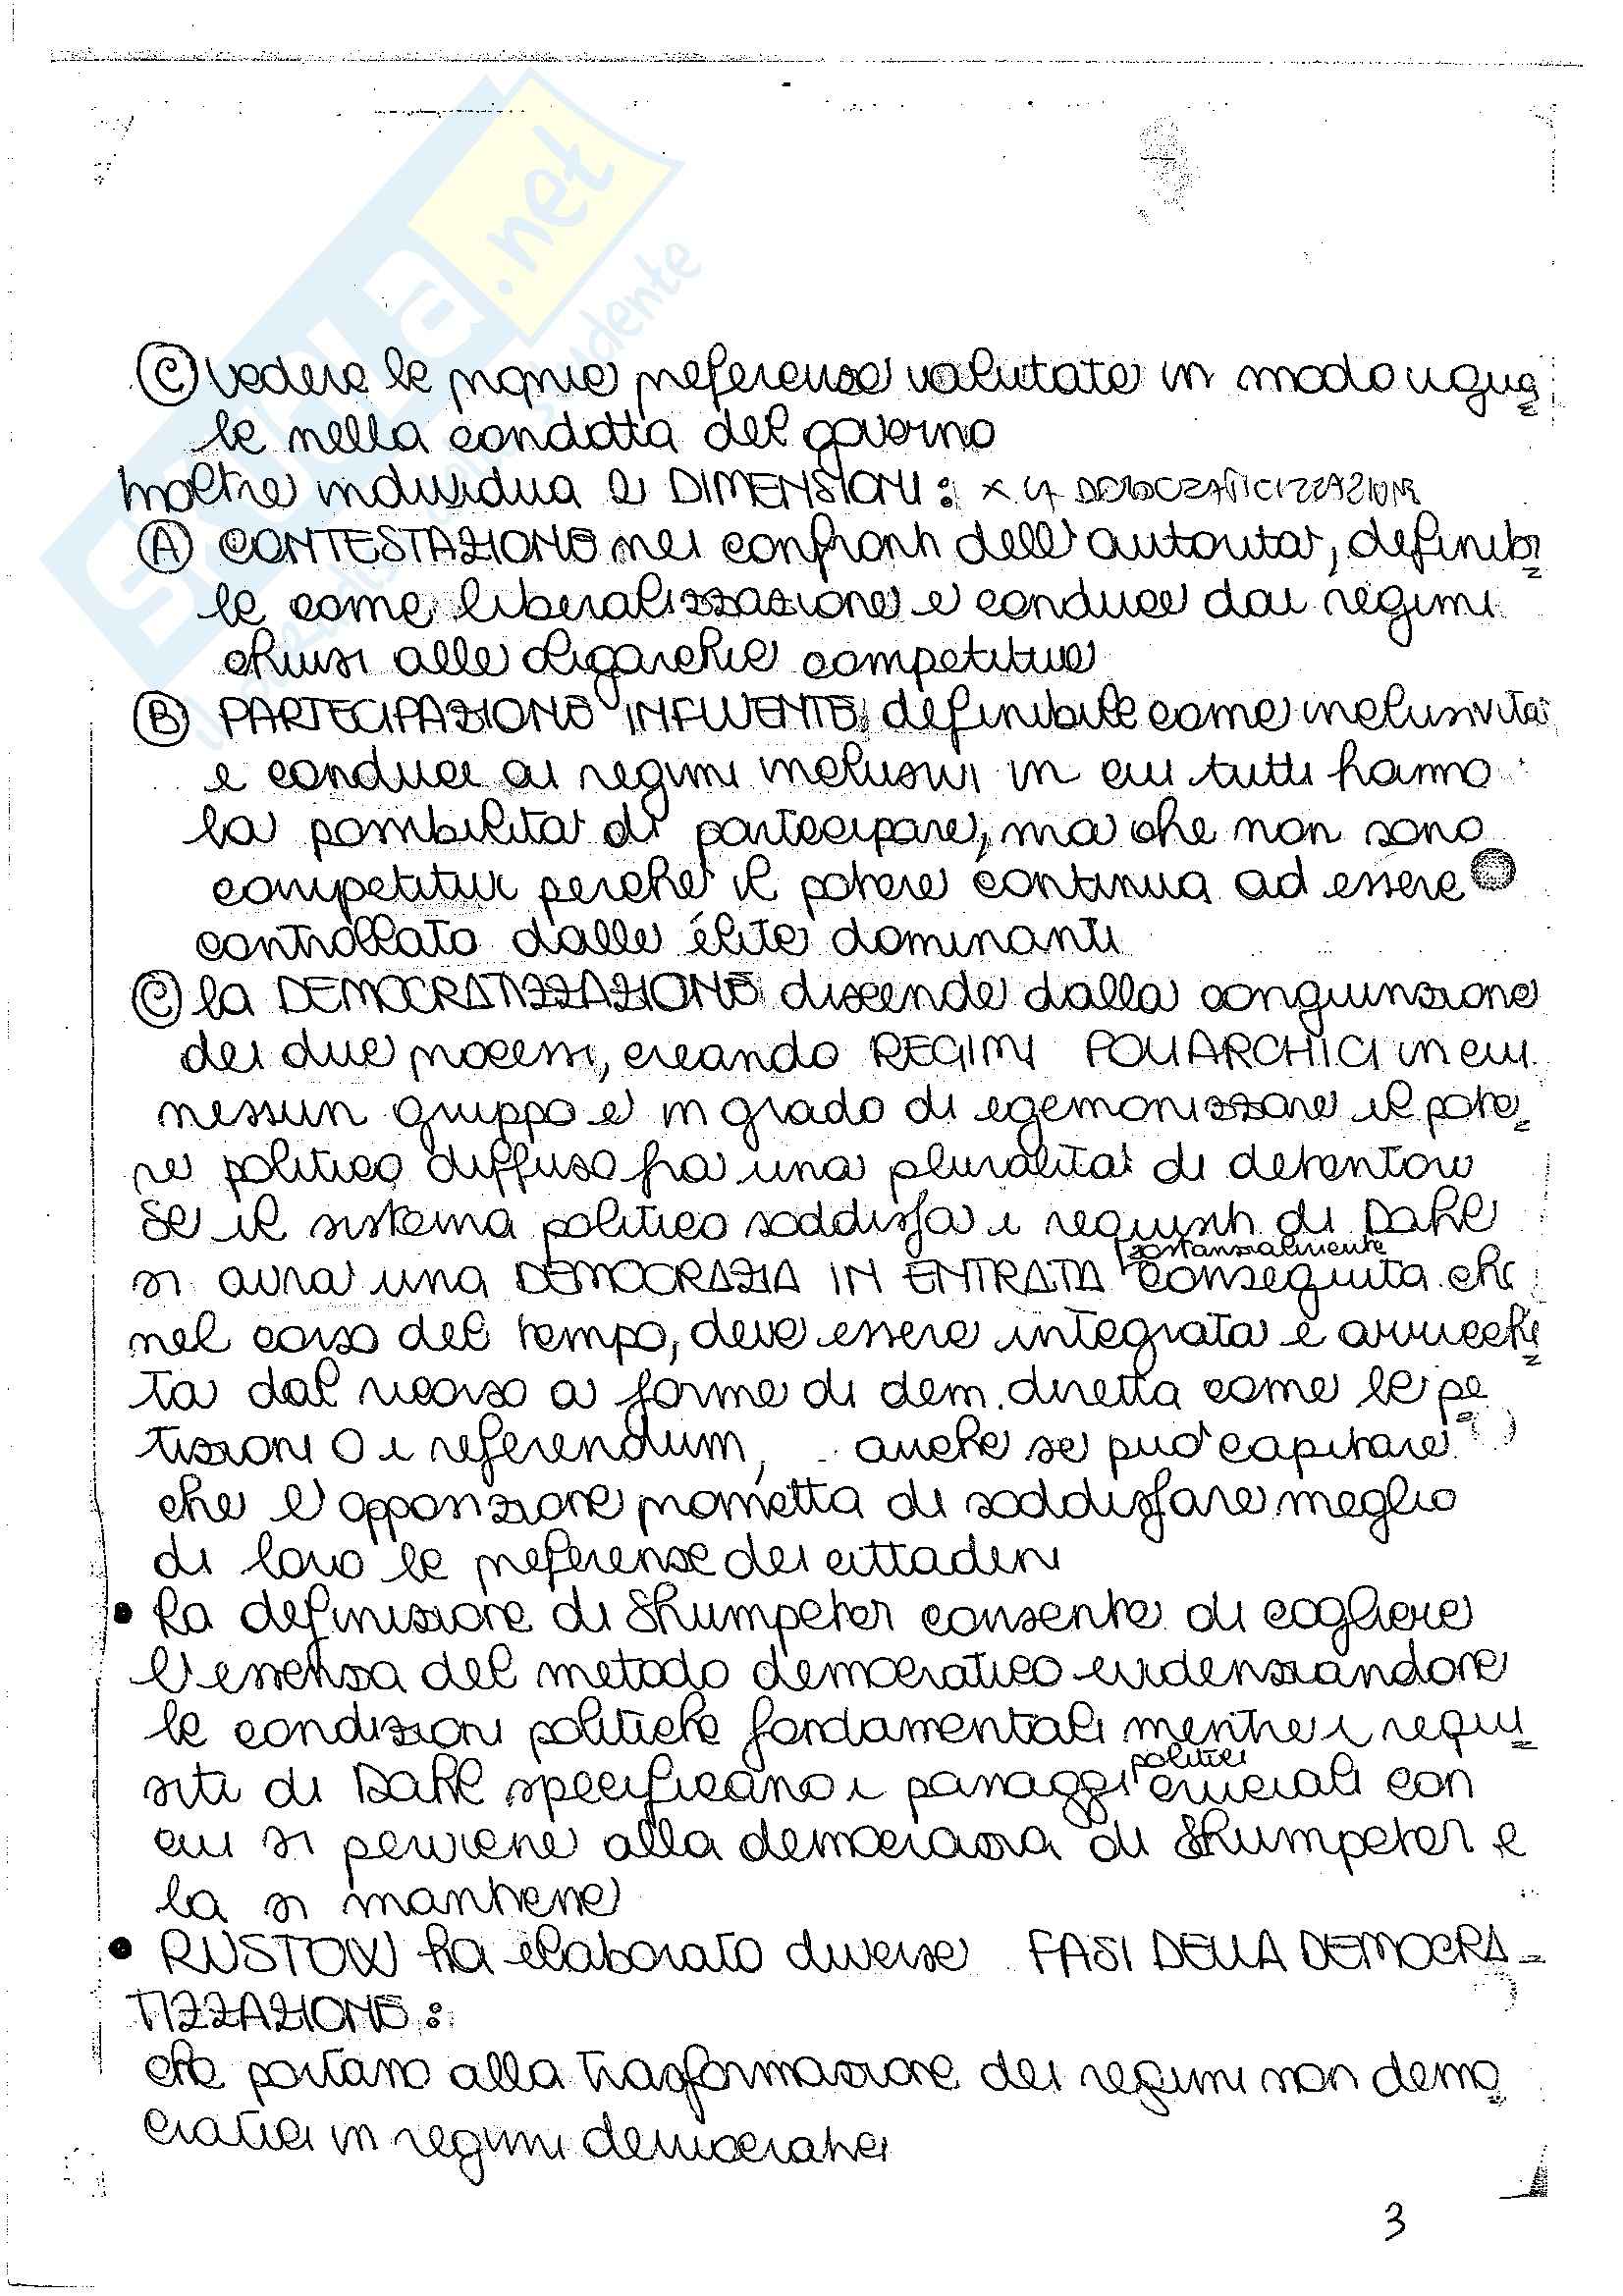 .net
Ⓒ vedere le proprie preferenze valutate in modo ugua=
le nella condotta del governo
Inoltre individua 2 DIMENSIONI: x la DEMOCRATICIZZAZIONE
Ⓐ CONTESTAZIONE nei confronti dell'autorità, definibi=
le come liberalizzazione e conduce dai regimi
chiusi alle oligarchie competitive
Ⓑ PARTECIPAZIONE INFLUENTE, definibile come inclusività
e conduce ai regimi inclusivi in cui tutti hanno
la possibilità di partecipare, ma che non sono
competitivi perché il potere continua ad essere
controllato dalle élite dominanti
Ⓒ la DEMOCRATIZZAZIONE discende dalla congiunzione
dei due processi, creando REGIMI POLIARCHICI in cui
nessun gruppo è in grado di egemonizzare il pote=
re politico diffuso fra una pluralità di detentori
Se il sistema politico soddisfa i requisiti di Dahl
sostanzialmente
si avrà una DEMOCRAZIA IN ENTRATA conseguita che
nel corso del tempo, deve essere integrata e arricchi=
ta dal ricorso a forme di dem. diretta come le pe=
tizioni o i referendum, anche se può capitare
che l'opposizione prometta di soddisfare meglio
di loro le preferenze dei cittadini
• la definizione di Shumpeter consente di cogliere
l'essenza del metodo democratico evidenziandone
le condizioni politiche fondamentali mentre i requi=
politici
siti di Dahl specificano i passaggi cruciali con
cui si perviene alla democrazia di Shumpeter e
la si mantiene
• RUSTOW ha elaborato diverse FASI DELLA DEMOCRA=
TIZZAZIONE:
che portano alla trasformazione dei regimi non demo=
cratici in regimi democratici
3